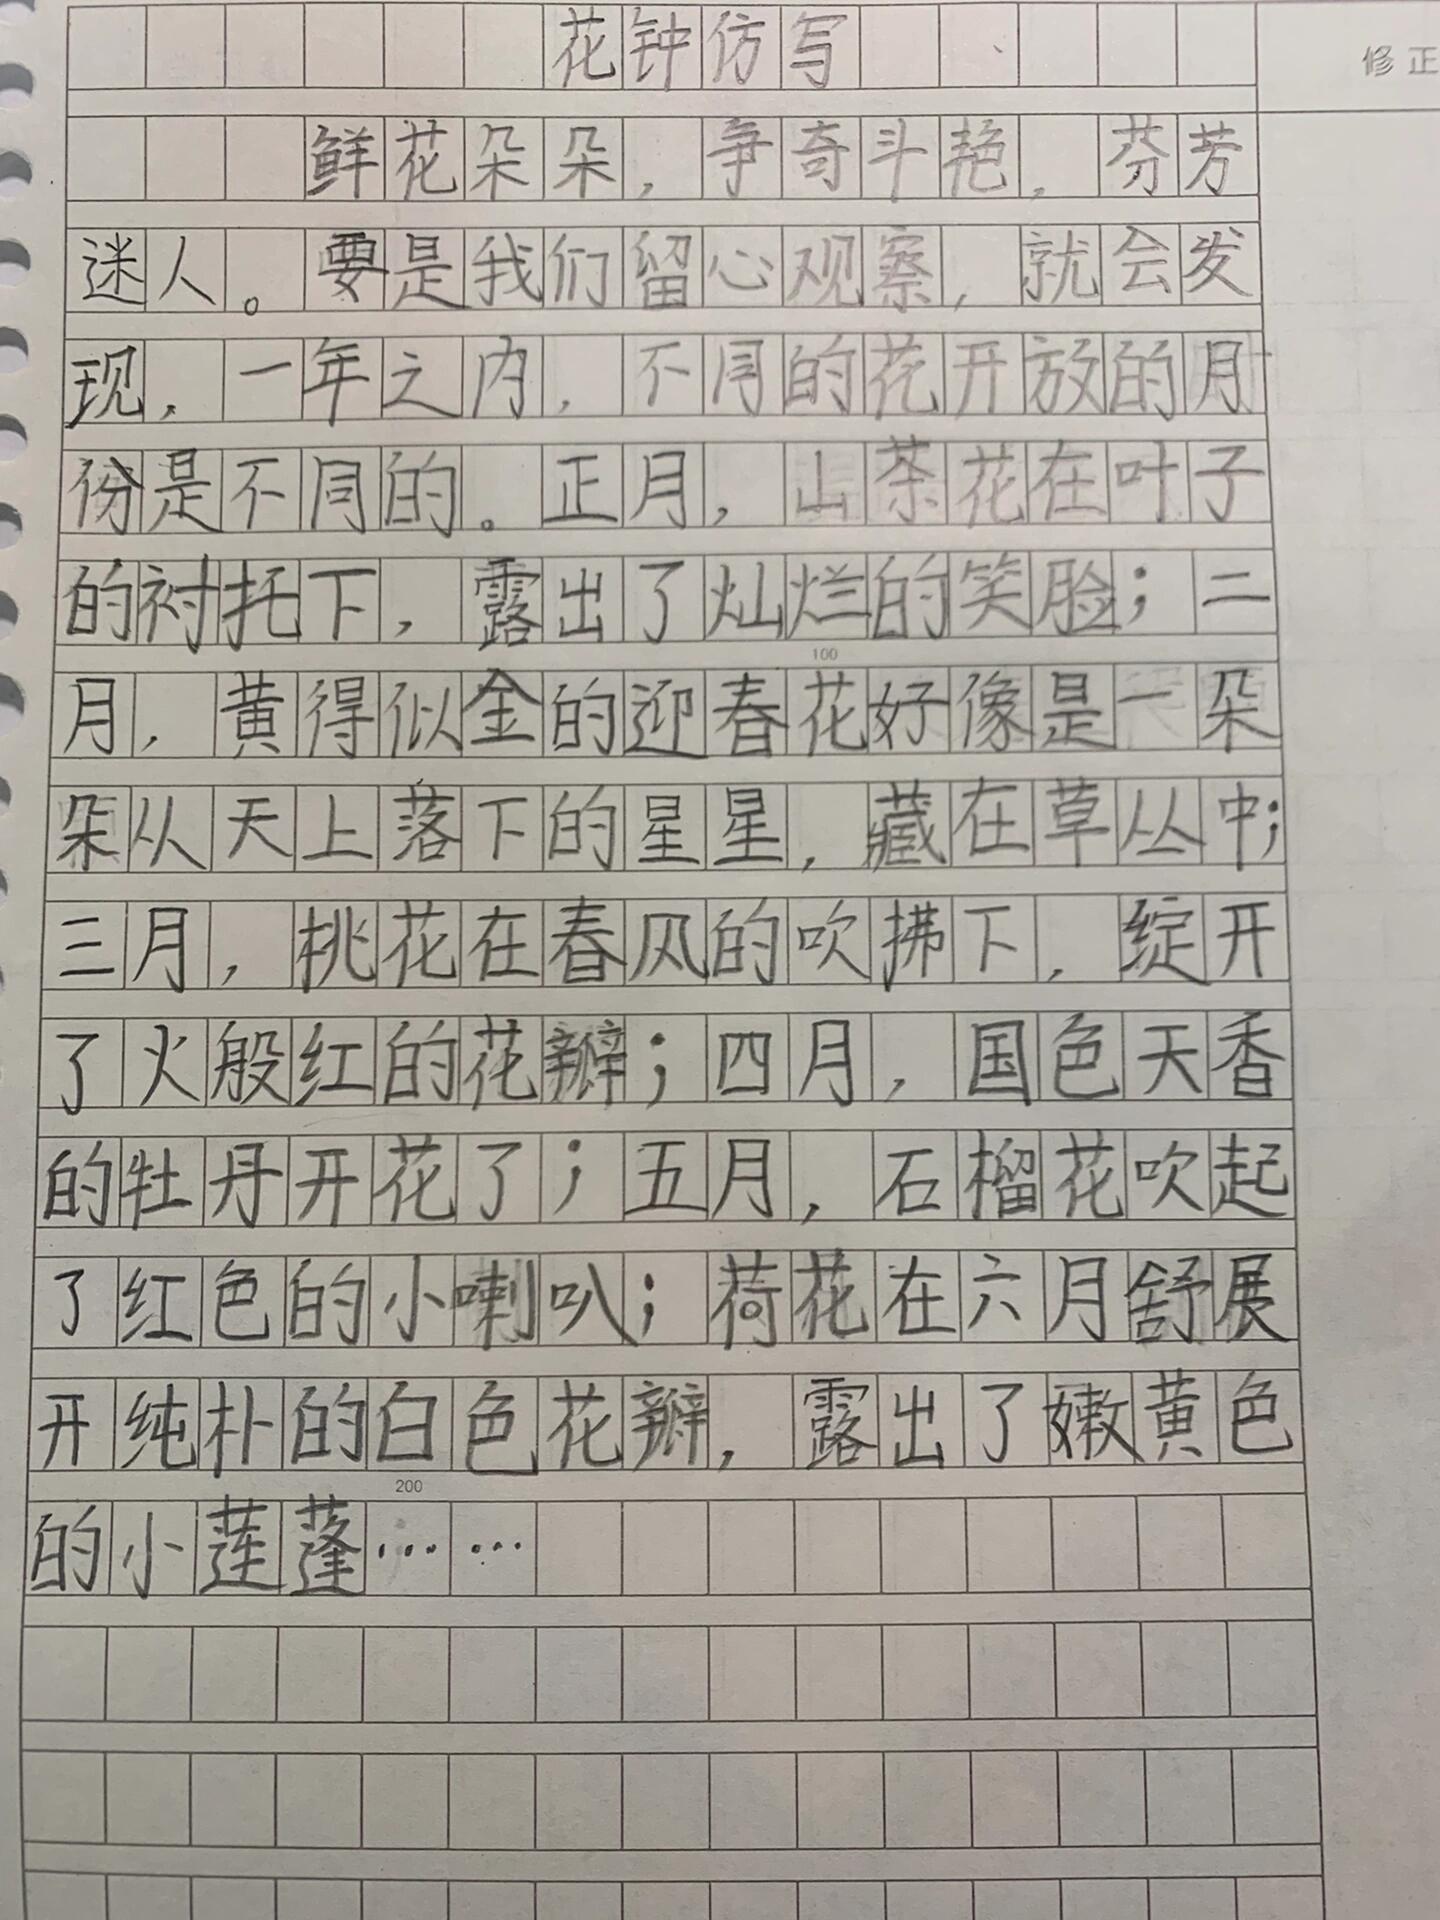 花钟仿写
修正
鲜花朵朵，争奇斗艳，芬芳
迷人。要是我们留心观察，就会发
现，一年之内，不同的花开放的月
份是不同的。正月，山茶花在叶子
的衬托下，露出了灿烂的笑脸；二
100
月，黄得似金的迎春花好像是一朵
朵从天上落下的星星，藏在草丛中；
三月，桃花在春风的吹拂下，绽开
了火般红的花瓣；四月，国色天香
的牡丹开花了；五月，石榴花吹起
了红色的小喇叭；荷花在六月舒展
开纯朴的白色花瓣，露出了嫩黄色
200
的小莲蓬……